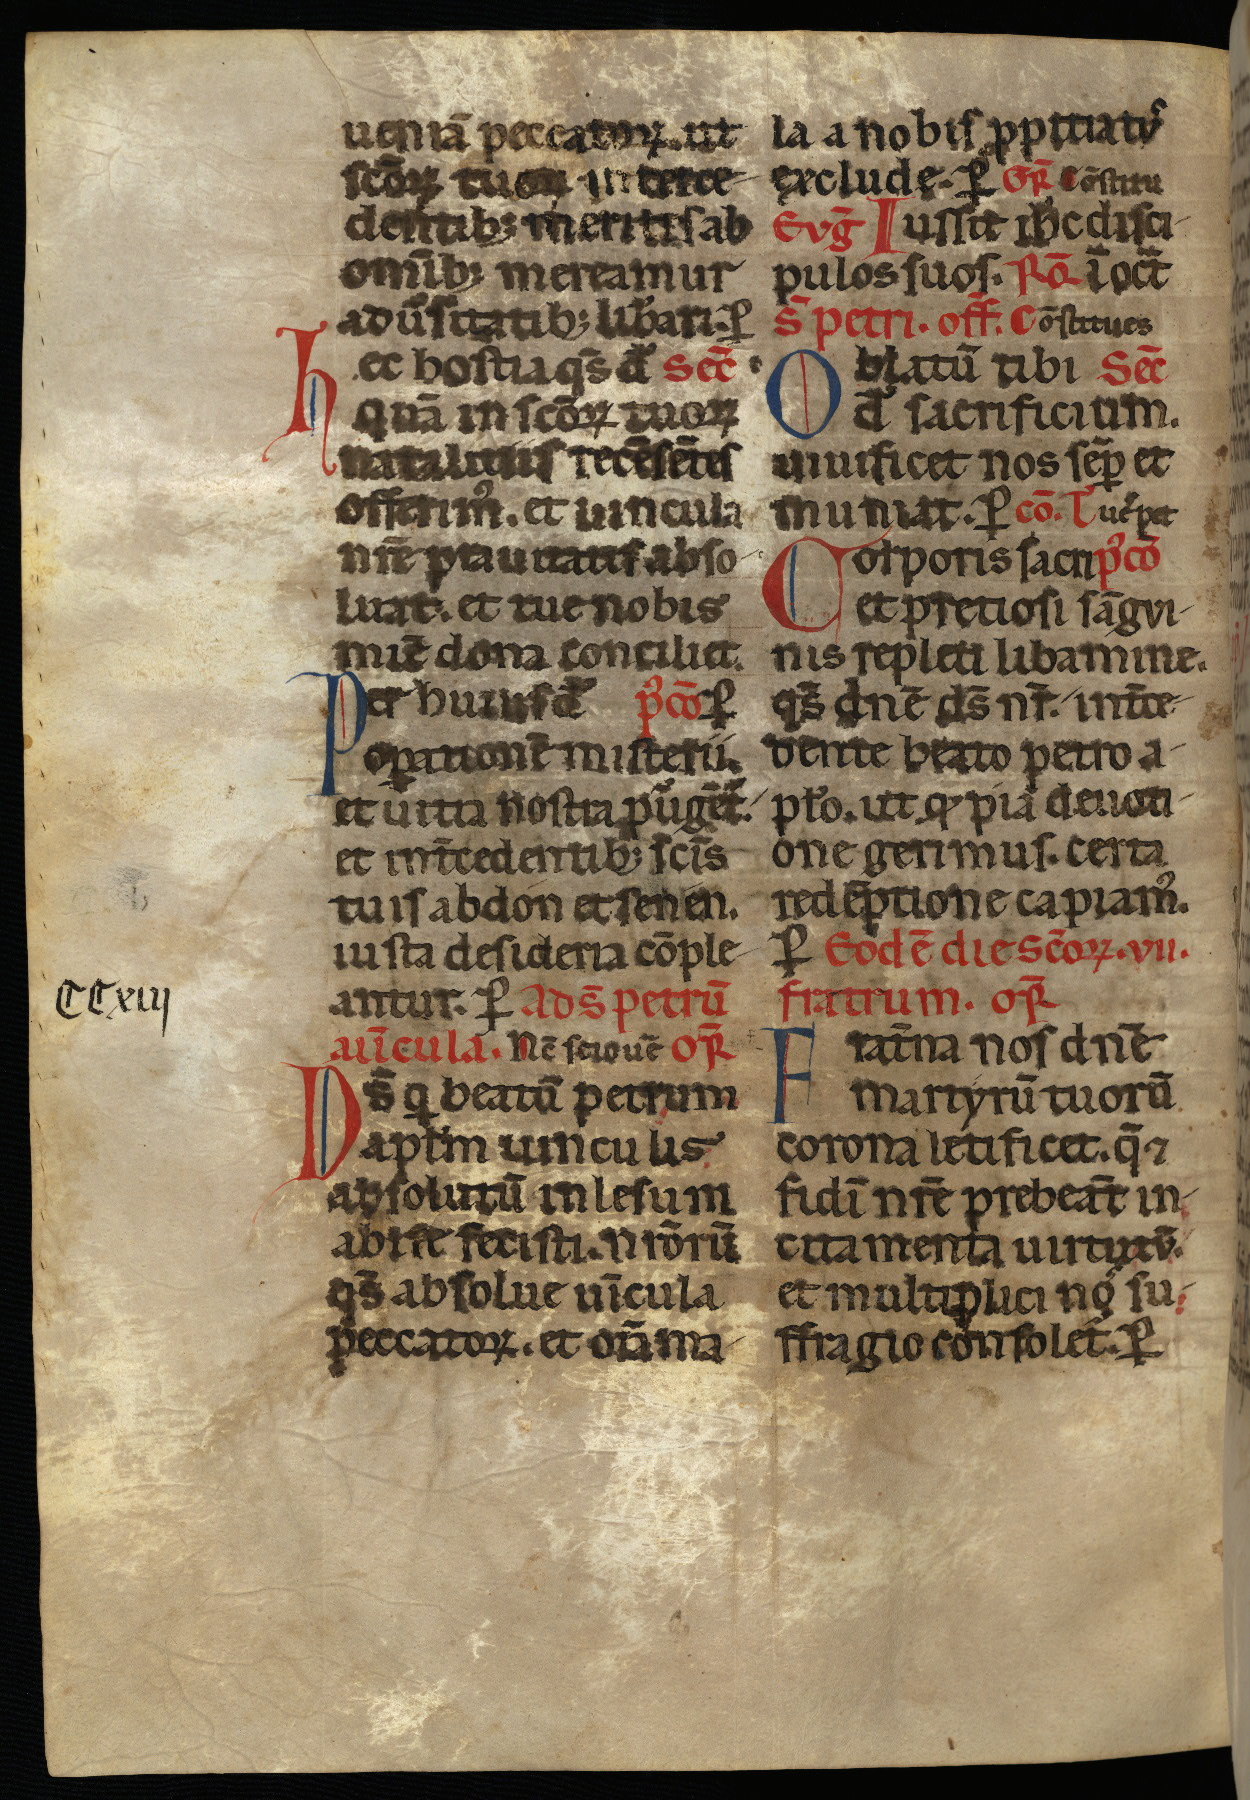 ueniā peccatoꝝ. ut
scōꝝ tuoꝝ interce-
dentib; meritis ab
omīb; mereamur
aduͥsitatib; libari. ꝑ
hec hostia qs̄ d̄ Secr̄
quā in scōꝝ tuoꝝ
nataliciis recēsētes
offerimꝰ. et uincula
nr̄e prauitatis abso-
luat. et tue nobis
mīe dona conciliet.
Per huius d̄ p̄cō ꝑ
opationē misterii.
et uitia nostra pᵘgēt̄.
et int̄cedentib; scīs
tuis abdon et senen.
iusta desideria cōple-
antur. ꝑ Ad s̄ petrū
CCxiiij
auīcula. Nē scio uē oꝝ̄
Ds̄ q beatū petrum
aptm̄ uinculis
absolutū inlesum
abire fecisti. nr̄orū
qs̄ absolue uīcula
peccatoꝝ. et om̄ia ma-
la a nobis ꝓpitiatꝰ
exclude. ꝑ Gr̄ Cōstitu
Evḡ Iussit ih̄c disci-
pulos suos. Rō ī oct̄
s̄ petri. off̄. Cōstitues
Oblatū tibi Secr̄
d̄ sacrificium.
uiuificet nos sēp et
muniat. ꝑ cō. Tu es pet
Corporis sacri p̄cō
et pretiosi sāgvi-
nis repleti libamine.
qs̄ dn̄e ds̄ nr̄. int̄ce-
dente beato petro a-
pło. ut q piā deuoti-
one gerimus. certa
redēptione capiamꝰ.
ꝑ Eodē die Scōꝝ. vii.
fratrum. or̄
Fratn̄a nos dn̄e
martyrū tuorū
corona letificet. q̄ ⁊
fidī nr̄e prebeat̄ in-
citamenta uirtutū.
et multiplici nō su-
ffragio consolet̄. ꝑ